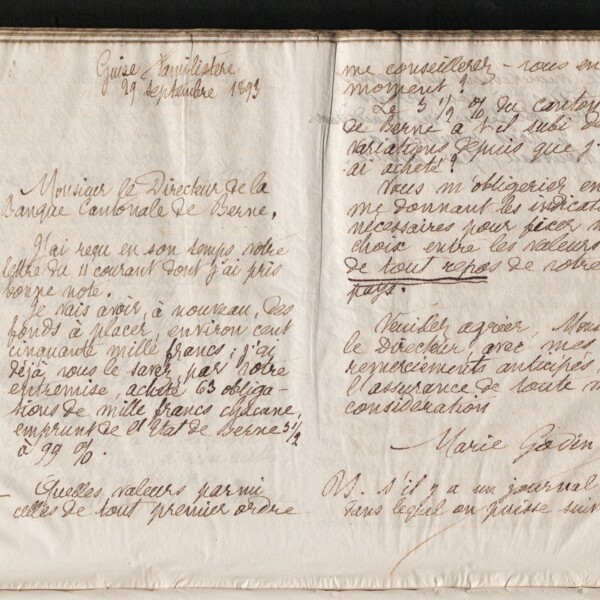 Guise Familistère
29 septembre 1893
Monsieur le Directeur de la
Banque Cantonale de Berne,
J'ai reçu en son temps votre
lettre du 11 courant dont j'ai pris
bonne note.
Je vais avoir, à nouveau, des
fonds à placer, environ cent
cinquante mille francs; j'ai
déjà vous le savez, par votre
entremise, acheté 63 obliga-
tions de mille francs chacune,
emprunt de l'Etat de Berne 3 1/2
à 99 %.
Quelles valeurs parmi
celles de tout premier ordre
me conseillerez-vous en
moment?
Le 3 1/2 % du canton
de Berne a t'il subi de
variations depuis que j'
ai acheté?
Vous m'obligeriez en
me donnant les indicat
nécessaires pour fixer
choix entre les valeurs
de tout repos de votre
pays.
Veuillez agréer, Mons
le Directeur, avec mes
remerciements anticipés,
l'assurance de toute
considération
Marie Godin
P.S. s'il y a un journal
dans lequel on puisse suiv